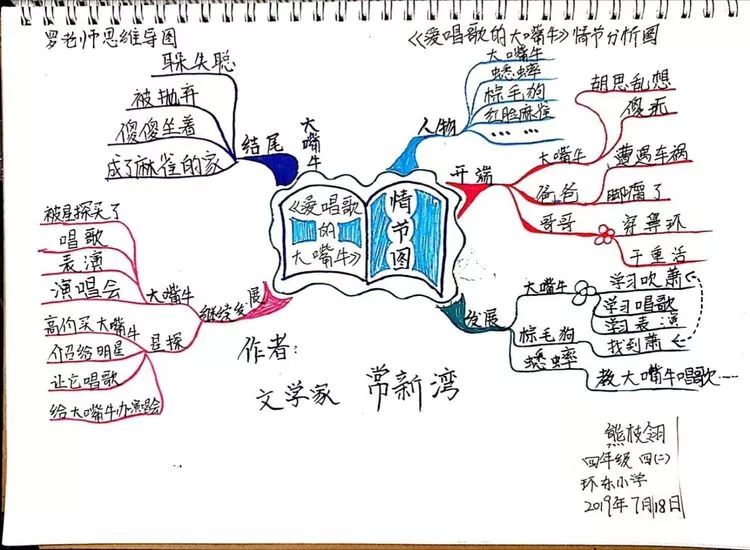 罗老师思维导图
《爱唱歌的大嘴牛》情节分析图
《爱唱歌
的
大嘴牛》
情节图
人物
大嘴牛
蟋蟀
棕毛狗
红脸麻雀
……
开端
大嘴牛
胡思乱想
傻
爸爸
遭遇车祸
脚瘸了
哥哥
穿鼻环
干重活
发展
大嘴牛
学习吹萧
学习唱歌
学习表演
棕毛狗
找到萧
蟋蟀
教大嘴牛唱歌……
继续发展
大嘴牛
被星探买了
唱歌
表演
演唱会
星探
高价买大嘴牛
介绍给明星
让它唱歌
给大嘴牛办演唱会
结尾
大嘴牛
耳朵失聪
被抛弃
傻傻坐着
成了麻雀的家
作者:
文学家 常新湾
熊枝翎
四年级 四(二)
环东小学
2019年7月18日